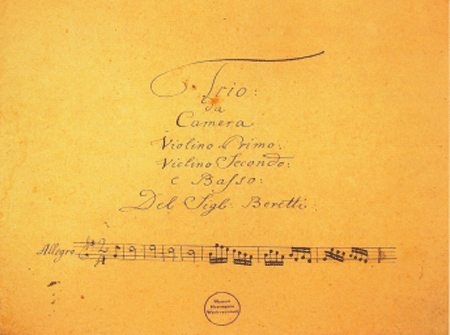 Trio:
da
Camera
Violino Primo:
Violino Secondo:
e Basso:
Del Sigl: Beretti
Allegro